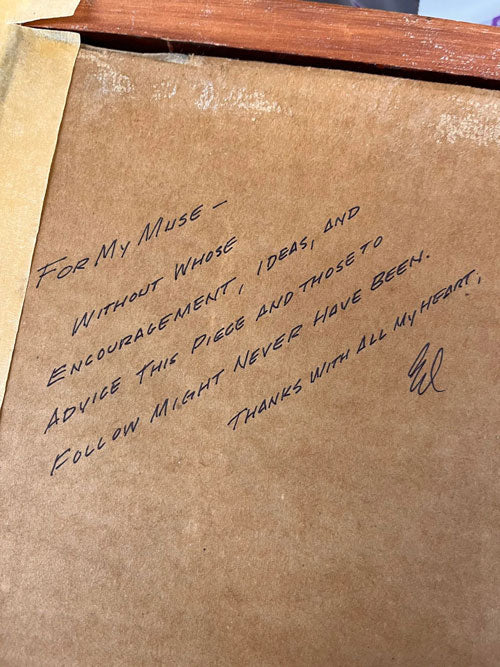 FOR MY MUSE –
WITHOUT WHOSE
ENCOURAGEMENT, IDEAS, AND
ADVICE THIS PIECE AND THOSE TO
FOLLOW MIGHT NEVER HAVE BEEN.
THANKS WITH ALL MY HEART,
Ed